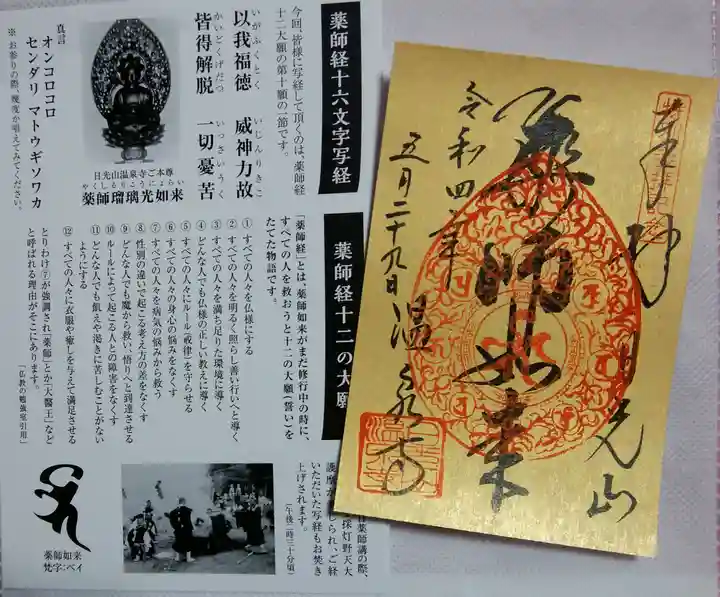 薬師経十六文字写経
今回、皆様に写経して頂くのは、薬師経
十二大願の第十願の一節です。
いがふくとく いじんりきこ
以我福徳 威神力故
かいとくげだつ いっさいうく
皆得解脱 一切憂苦
日光山温泉寺ご本尊
やくしるりこうにょらい
薬師瑠璃光如来
真言
オンコロコロ
センダリ マトウギソワカ
※ お参りの際、幾度か唱えてみてください。
薬師経十二の大願
「薬師経」とは、薬師如来がまだ修行中の時に、
すべての人を救おうと十二の大願(誓い)を
たてた物語です。
① すべての人々を仏様にする
② すべての人々を明るく照らし善い行いへと導く
③ すべての人々を満ち足りた環境に導く
④ どんな人でも仏様の正しい教えに導く
⑤ すべての人々にルール(戒律)を守らせる
⑥ すべての人々の身心の悩みをなくす
⑦ すべての人々を病気の悩みから救う
⑧ 性別の違いで起こる考え方の差をなくす
⑨ どんな人でも魔から救い悟りへと到達させる
⑩ ルールによって起こる人との障害をなくす
⑪ どんな人でも飢えや渇きに苦しむことがない
ようにする
⑫ すべての人々に衣服や癒しを与えて満足させる
とりわけ⑦が強調され「薬師」とか「大醫王」など
と呼ばれる理由がそこにあります。
「仏教の勉強室引用」
薬師講の際、
採灯野天大
護摩が
じられ、ご経
いただいた写経もお焚き
上げされます。
(午後二時三十分頃)
薬師如来
梵字:ベイ
奉拝
日光山
薬師如来
令和四年
五月二十九日
温泉寺